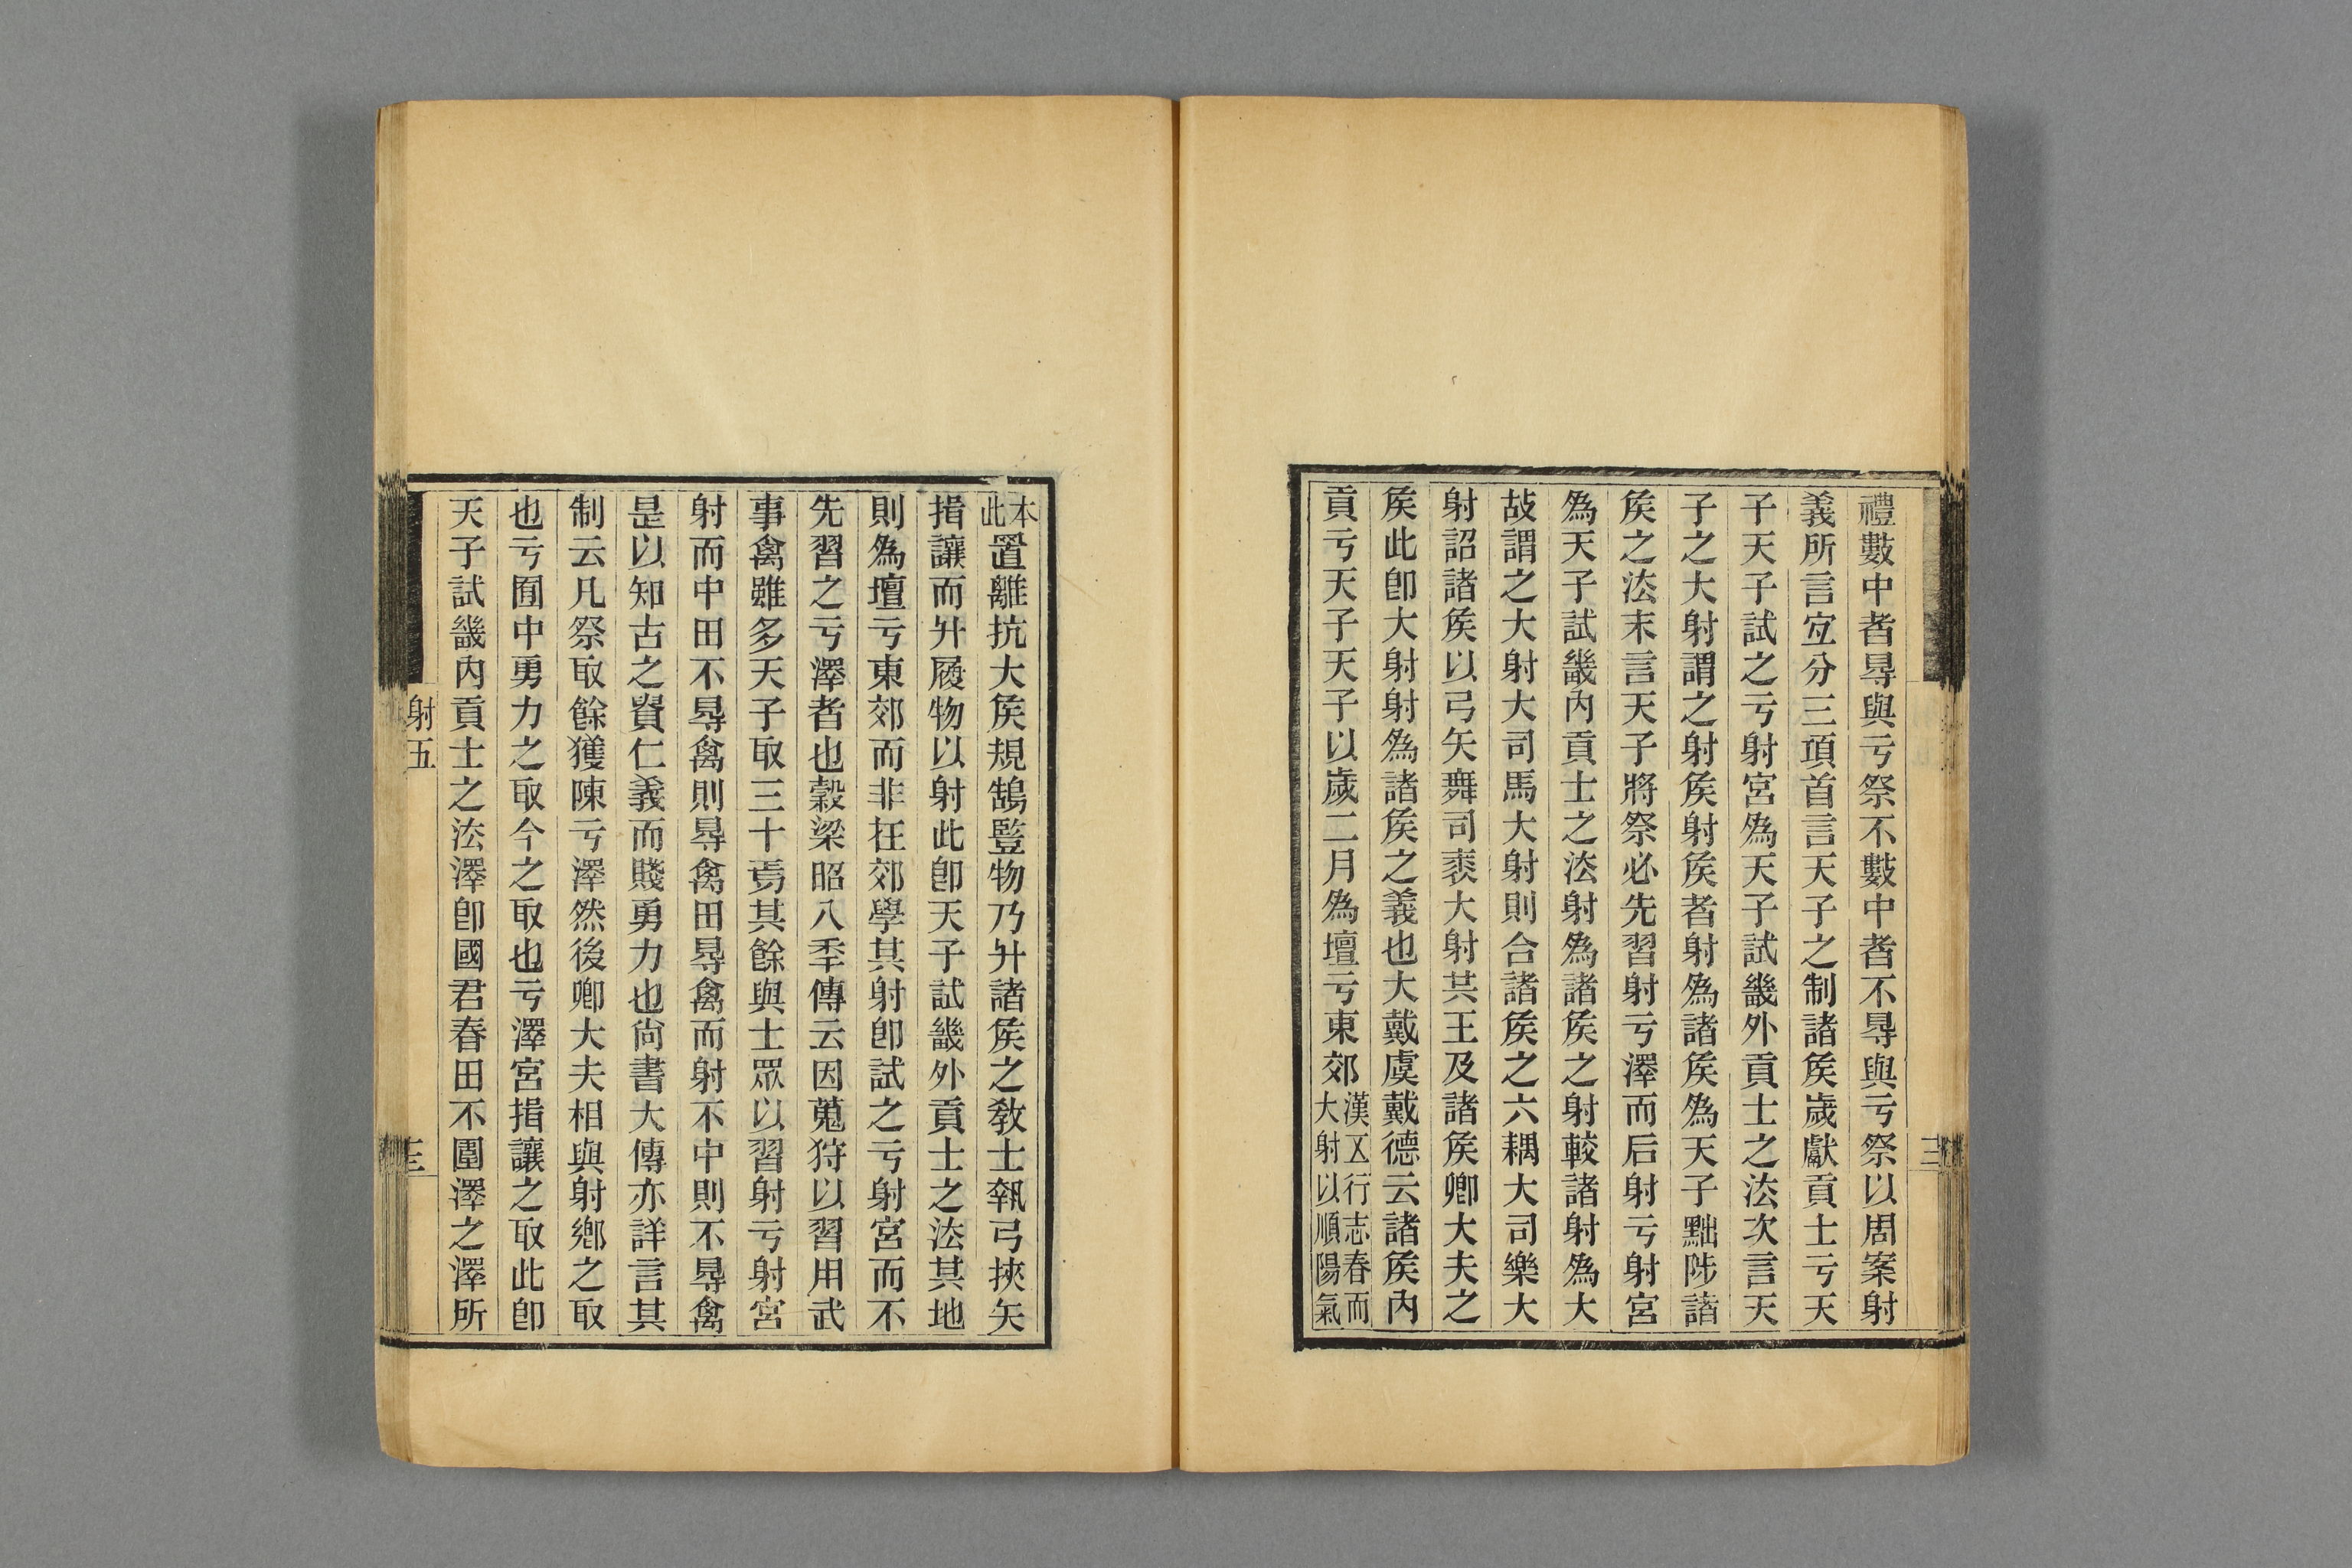 禮數中者㝵與亏祭不數中者不㝵與亏祭以周案射
義所言宐分三項首言天子之制諸矦歲獻貢士亏天
子天子試之亏射宮為天子試畿外貢士之法次言天
子之大射謂之射矦射矦者射為諸矦為天子黜陟諸
矦之法末言天子將祭必先習射亏澤而后射亏射宮
為天子試畿內貢士之法射為諸矦之射較諸射為大
故謂之大射大司馬大射則合諸矦之六耦大司樂大
射詔諸矦以弓矢舞司裘大射共王及諸矦卿大夫之
矦此卽大射射為諸矦之義也大戴虞戴德云諸矦內
貢亏天子天子以歲二月為壇亏東郊
漢五行志春而
大射以順陽氣
三
本
此
置離抗大矦規鵠豎物乃升諸矦之敎士執弓挾矢
揖讓而升履物以射此卽天子試畿外貢士之法其地
則為壇亏東郊而非在郊學其射卽試之亏射宮而不
先習之亏澤者也穀梁昭八秊傳云因蒐狩以習用武
事禽雖多天子取三十焉其餘與士眾以習射亏射宮
射而中田不㝵禽則㝵禽田㝵禽而射不中則不㝵禽
是以知古之貴仁義而賤勇力也尚書大傳亦詳言其
制云凡祭取餘獲陳亏澤然後卿大夫相與射鄉之取
也亏囿中勇力之取今之取也亏澤宮揖讓之取此卽
天子試畿內貢士之法澤卽國君春田不圍澤之澤所
射五
三